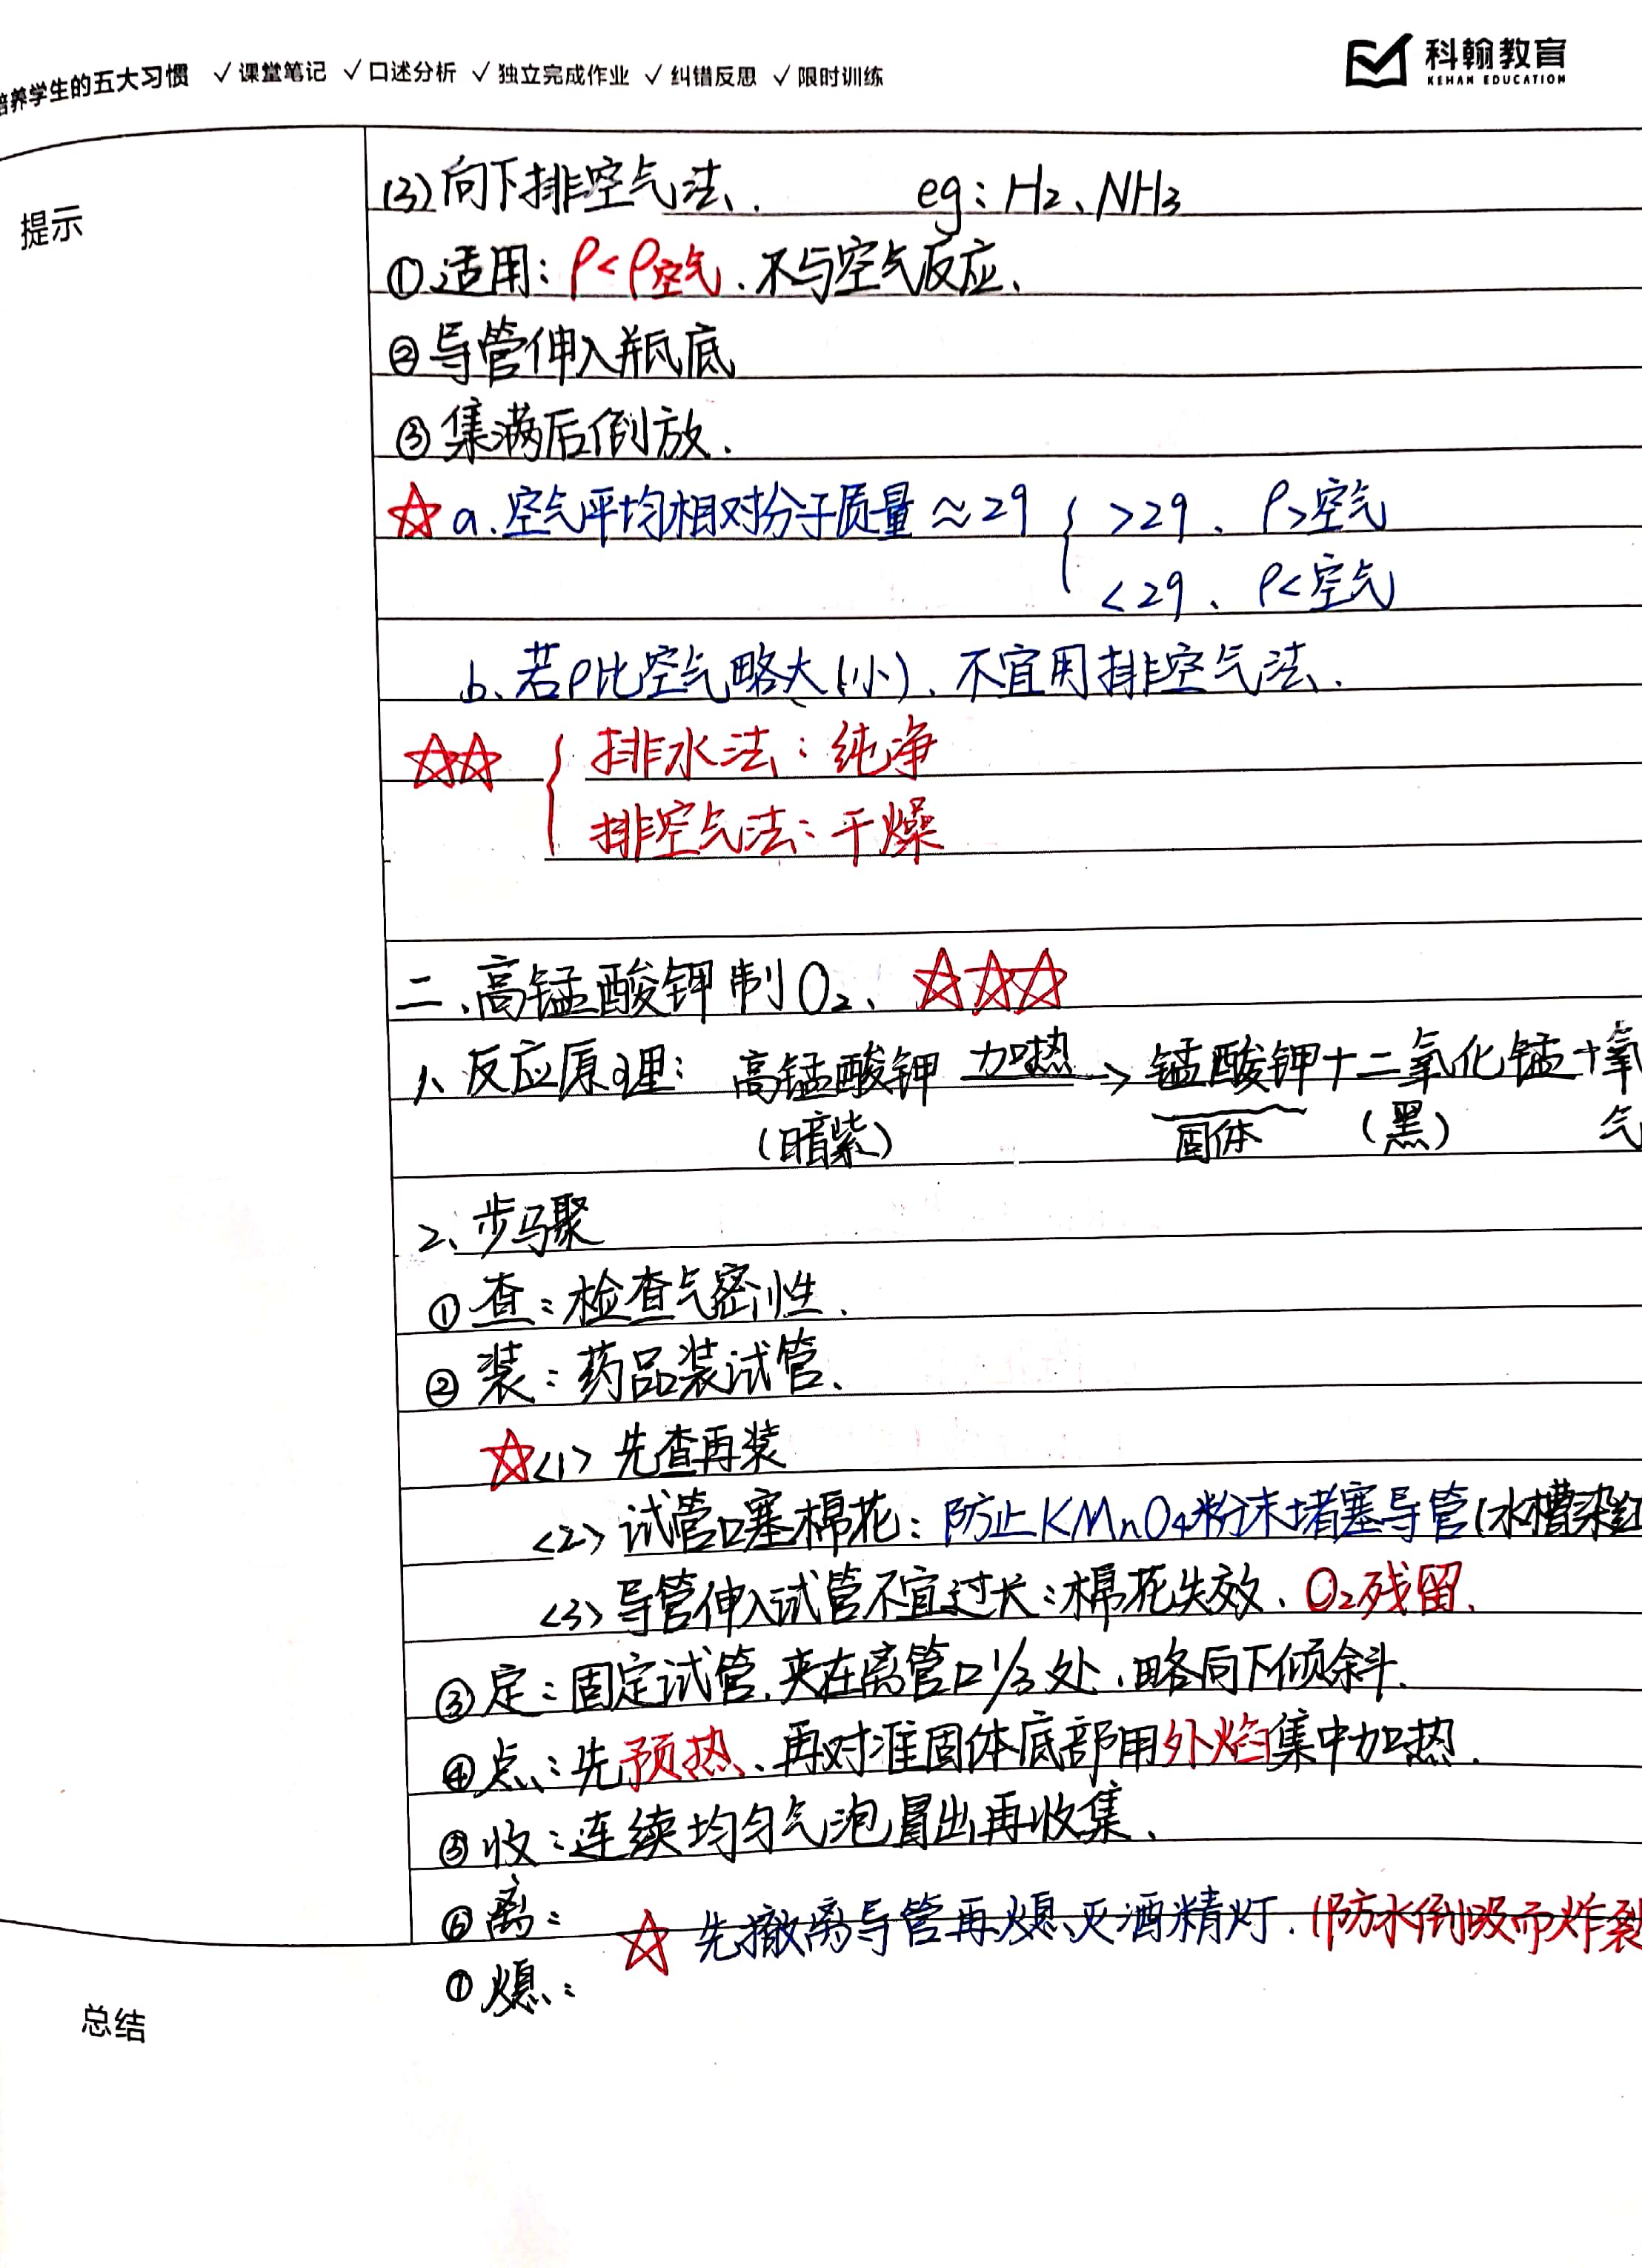 培养学生的五大习惯 ✓课堂笔记 ✓口述分析 ✓独立完成作业 ✓纠错反思 ✓限时训练
科翰教育
KEHAN EDUCATION
提示
(3)向下排空气法. eg:H₂、NH₃
①适用:ρ<ρ空气.不与空气反应、
②导管伸入瓶底
③集满后倒放.
☆a.空气平均相对分子质量≈29 { >29、ρ>空气
<29、ρ<空气
b、若ρ比空气略大(小)、不宜用排空气法.
☆☆ { 排水法:纯净
排空气法:干燥
二、高锰酸钾制O₂、☆☆☆
1、反应原理: 高锰酸钾 加热→ 锰酸钾+二氧化锰+氧
(暗紫) 固体 (黑) 气
2、步骤
①查:检查气密性.
②装:药品装试管.
☆<1> 先查再装
<2> 试管口塞棉花:防止KMnO₄粉末堵塞导管(水槽染红
<3> 导管伸入试管不宜过长:棉花失效、O₂残留.
③定:固定试管.夹在离管口1/3处、略向下倾斜.
④点:先预热、再对准固体底部用外焰集中加热.
⑤收:连续均匀气泡冒出再收集、
⑥离: ☆ 先撤离导管再熄灭酒精灯.(防水倒吸而炸裂
⑦熄:
总结